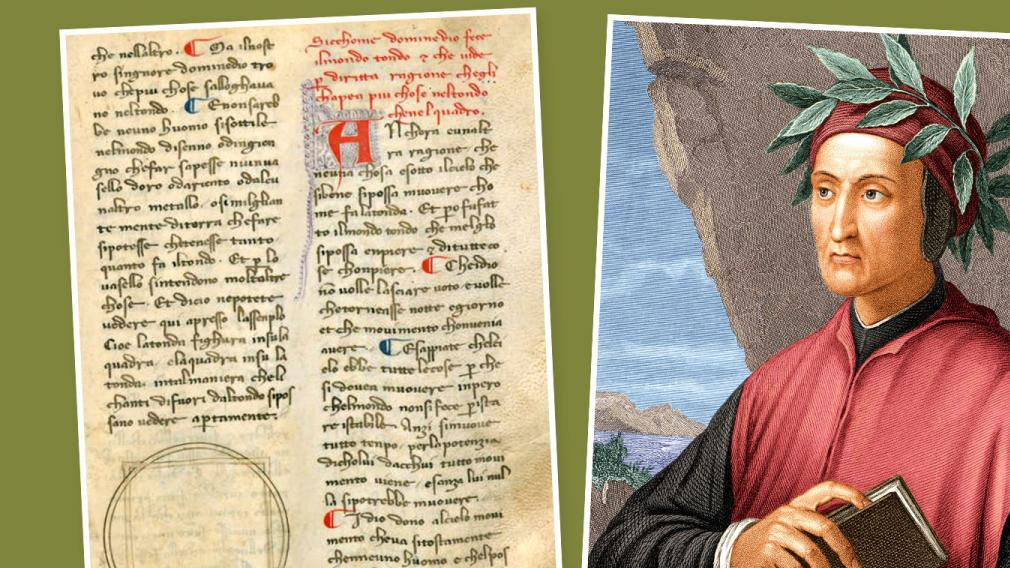 che nellaltro. Ma ilnost
ro singnore domenedio tro
uo chepiu chose salloghaua
no neltondo. Enonsareb
be neuno huomo sisottile
nelmondo disenno odingien
gno chefar sapesse niunua
sello doro odariento odalcu
naltro metallo. osimilglian
te mente diterra chefare
sipotesse chetenesse tanto
quanto fa iltondo. Et p lo
uasello sintendono moltaltre
chose. Et dicio nepotete
uedere qui apresso lassenplo
Cioe latonda fighura insula
quadra. elaquadra insu la
tonda. intalmaniera chell
chanti difuori daltondo sipos
sano uedere aptamente.
Sicchome domenedio fece
ilmondo tondo che uide
p diritta ragione chegli
chapea piu chose neltondo
chenelquadro.
ANchora eunalt
ra ragione che
neuna chosa esotto ilcielo che
sibene sipossa muouere cho
me fa latonda. Et po fu fat
to ilmondo tondo che melglo
sipossa enpiere ditutteco
se chonpiere. Cheidio
no uolle lasciare uoto euolle
chetornasse notte egiorno
et che mouimento chonuenia
auere. Esappiate chelci
elo ebbe tutte lecose p che
si douea muouere inpero
chelmondo nonsi fece pista
re istabile. Anzi simuoue
tutto tenpo. perlapotenzia
dicholui dacchui tutto moui
mento uiene. esanza lui nul
la sipotrebbe muouere.
Idio dono alcielo moui
mento cheua sitostamente
chenneuno huomo e chelpos